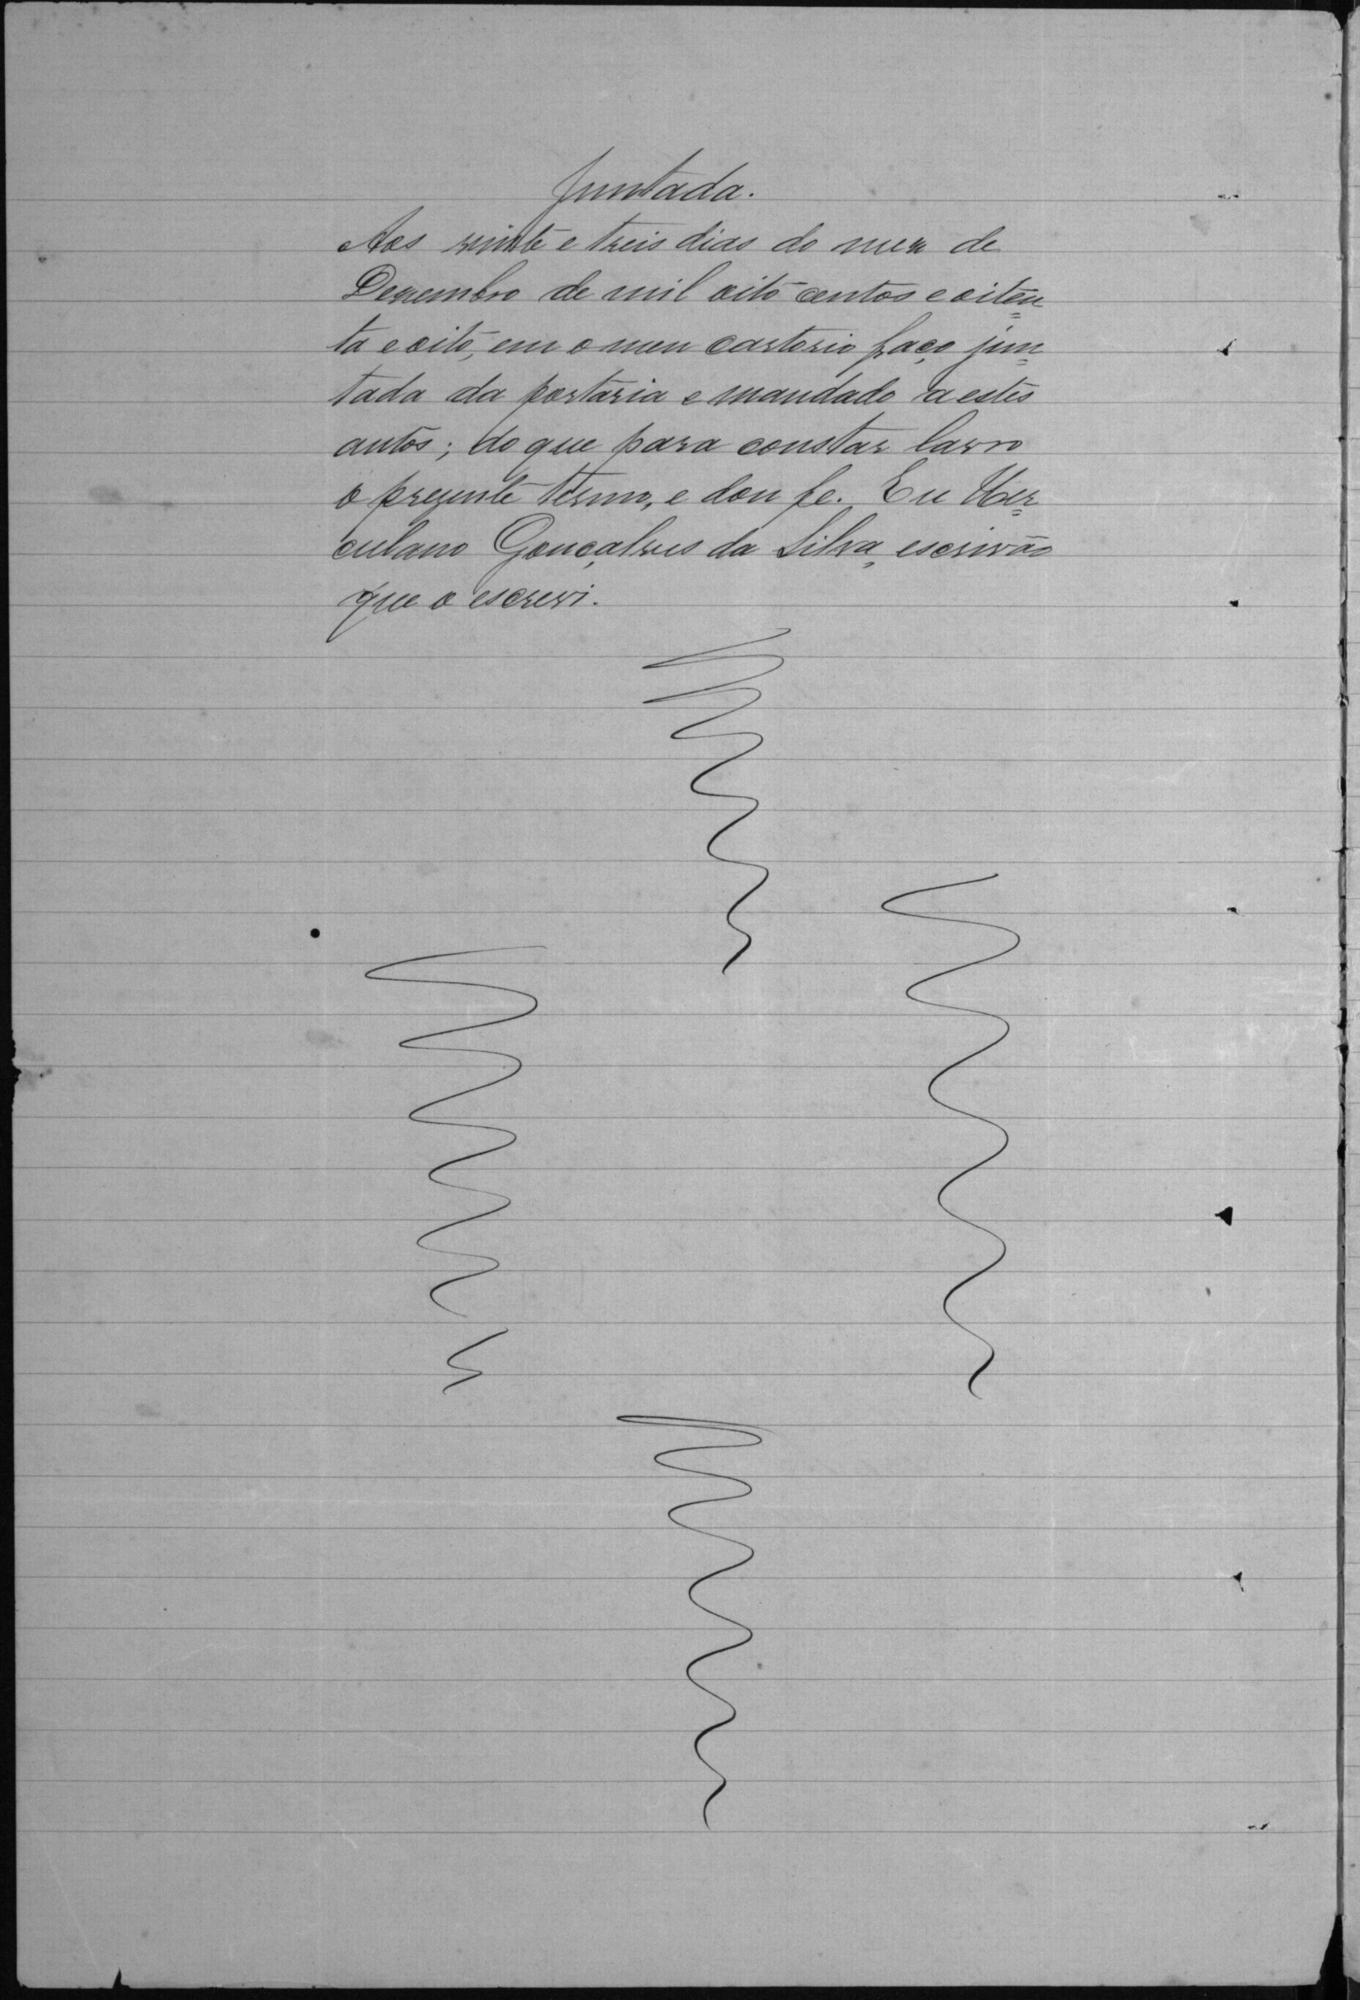 Juntada.
Aos vinte e treis dias do mez de
Dezembro de mil oito centos e oiten=
ta e oito, em o meu cartorio faço jun=
tada da portaria e mandado a estes
autos; do que para constar lavro
o prezente termo, e dou fe. Eu Her=
culano Gonçalves da Silva, escrivão
que o escrevi.